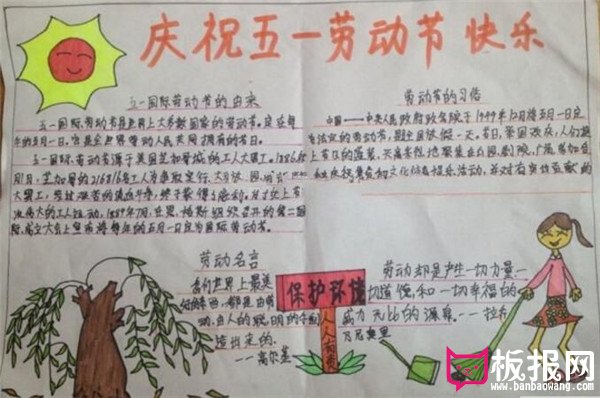 庆祝五一劳动节快乐
五一国际劳动节的由来
五一国际劳动节是世界上大多数国家的劳动节。定在每
年的五月一日。它是全世界劳动人民共同拥有的节日。
五一国际劳动节源于美国芝加哥城的工人大罢工。1886年
5月1日,芝加哥的216816名工人为争取实行
大罢工,经过艰苦的流血斗争,终于获得了胜利。为
次伟大的工人运动,1889年7月,
织召开的第二国
际成立大会上宣布将每年的五月一日定为国际劳动节。
劳动节的习俗
中国——中央人民政府政务院于1949年12月将五月一日定
为法定的劳动节,是全国放假一天。节日,举国欢庆,人们换
上节日的盛装,兴高采烈地聚集在公园、剧院,广场,参加各
种庆祝集会和文化体育娱乐活动,并对有突出贡献的
劳动名言
我们世界上最美
好的东西,都是由劳
动、由人的聪明的手创
造出来的。
——高尔基
保护环境
人人有责
劳动都是产生一切力量、一
切道德,和一切幸福的
威力无比的源泉。——拉夫
瓦尼奥里
板报网
www.banbaowang.com